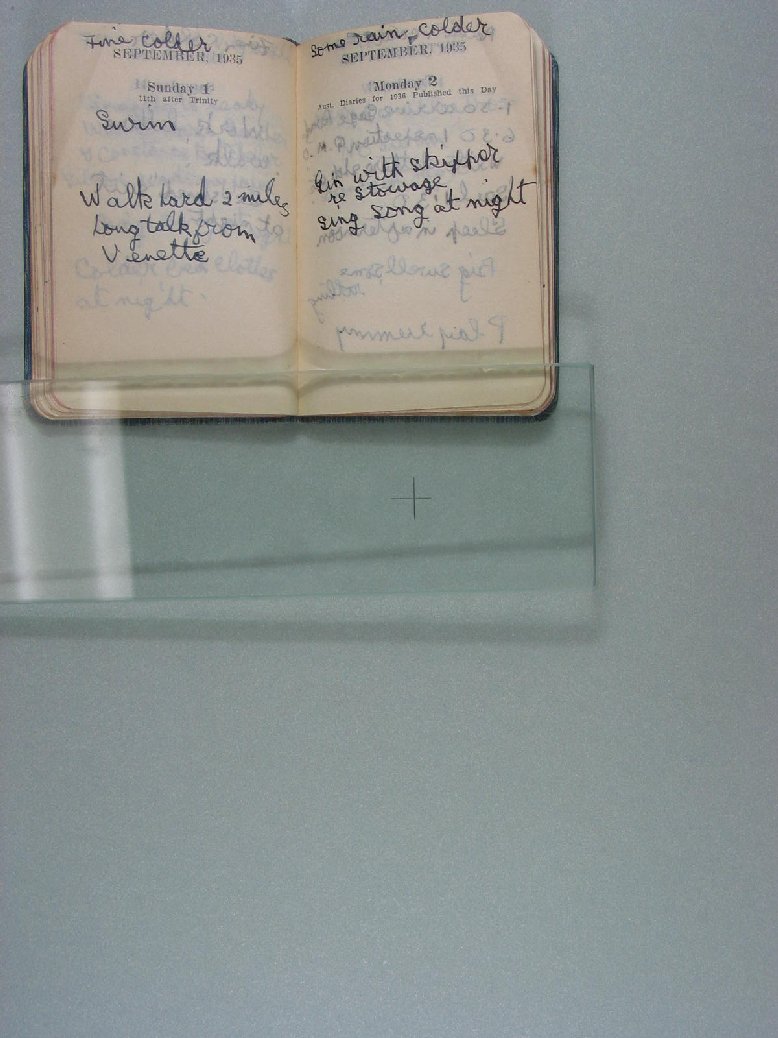 Fine colder
SEPTEMBER, 1935
Sunday 1
11th after Trinity
Swim
Walk hard 2 miles
Long talk from
Venette
Some rain, colder
SEPTEMBER, 1935
Monday 2
Aust. Diaries for 1936 Published this Day
Gin with skipper
re stowage
Sing song at night